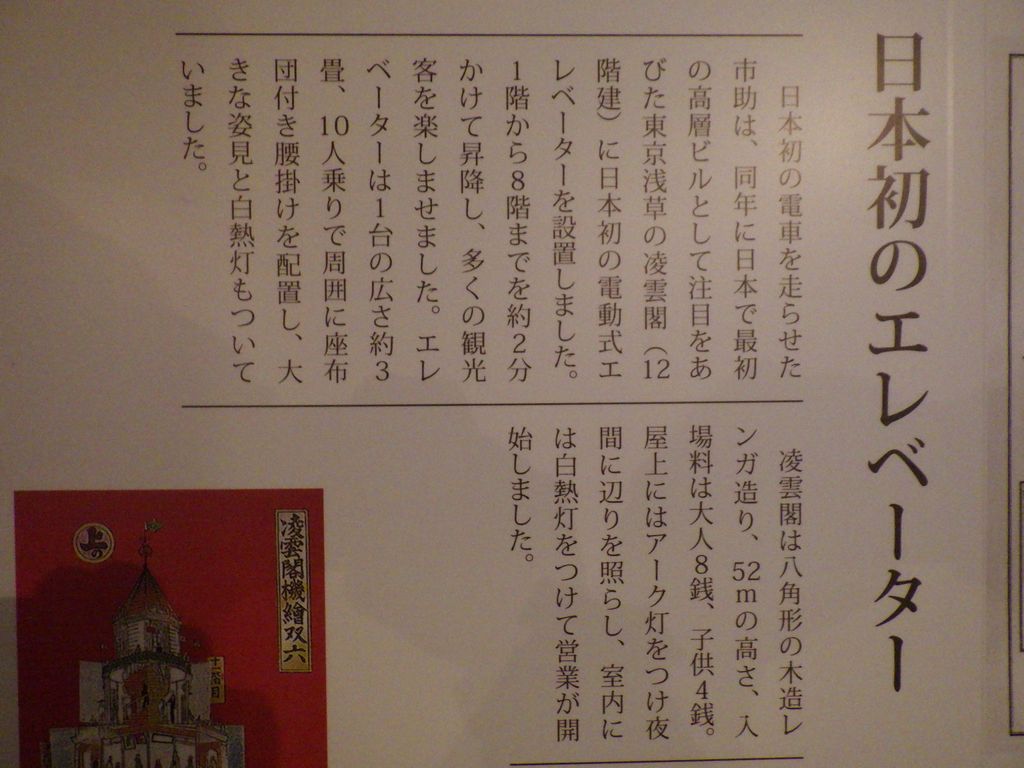 日本初のエレベーター
日本初の電車を走らせた
市助は、同年に日本で最初
の高層ビルとして注目をあ
びた東京浅草の凌雲閣（12
階建）に日本初の電動式エ
レベーターを設置しました。
1階から8階までを約2分
かけて昇降し、多くの観光
客を楽しませました。エレ
ベーターは1台の広さ約3
畳、10人乗りで周囲に座布
団付き腰掛けを配置し、大
きな姿見と白熱灯もついて
いました。
凌雲閣は八角形の木造レ
ンガ造り、52mの高さ、入
場料は大人8銭、子供4銭。
屋上にはアーク灯をつけ夜
間に辺りを照らし、室内に
は白熱灯をつけて営業が開
始しました。
凌雲閣機繪双六
上の
十二階目